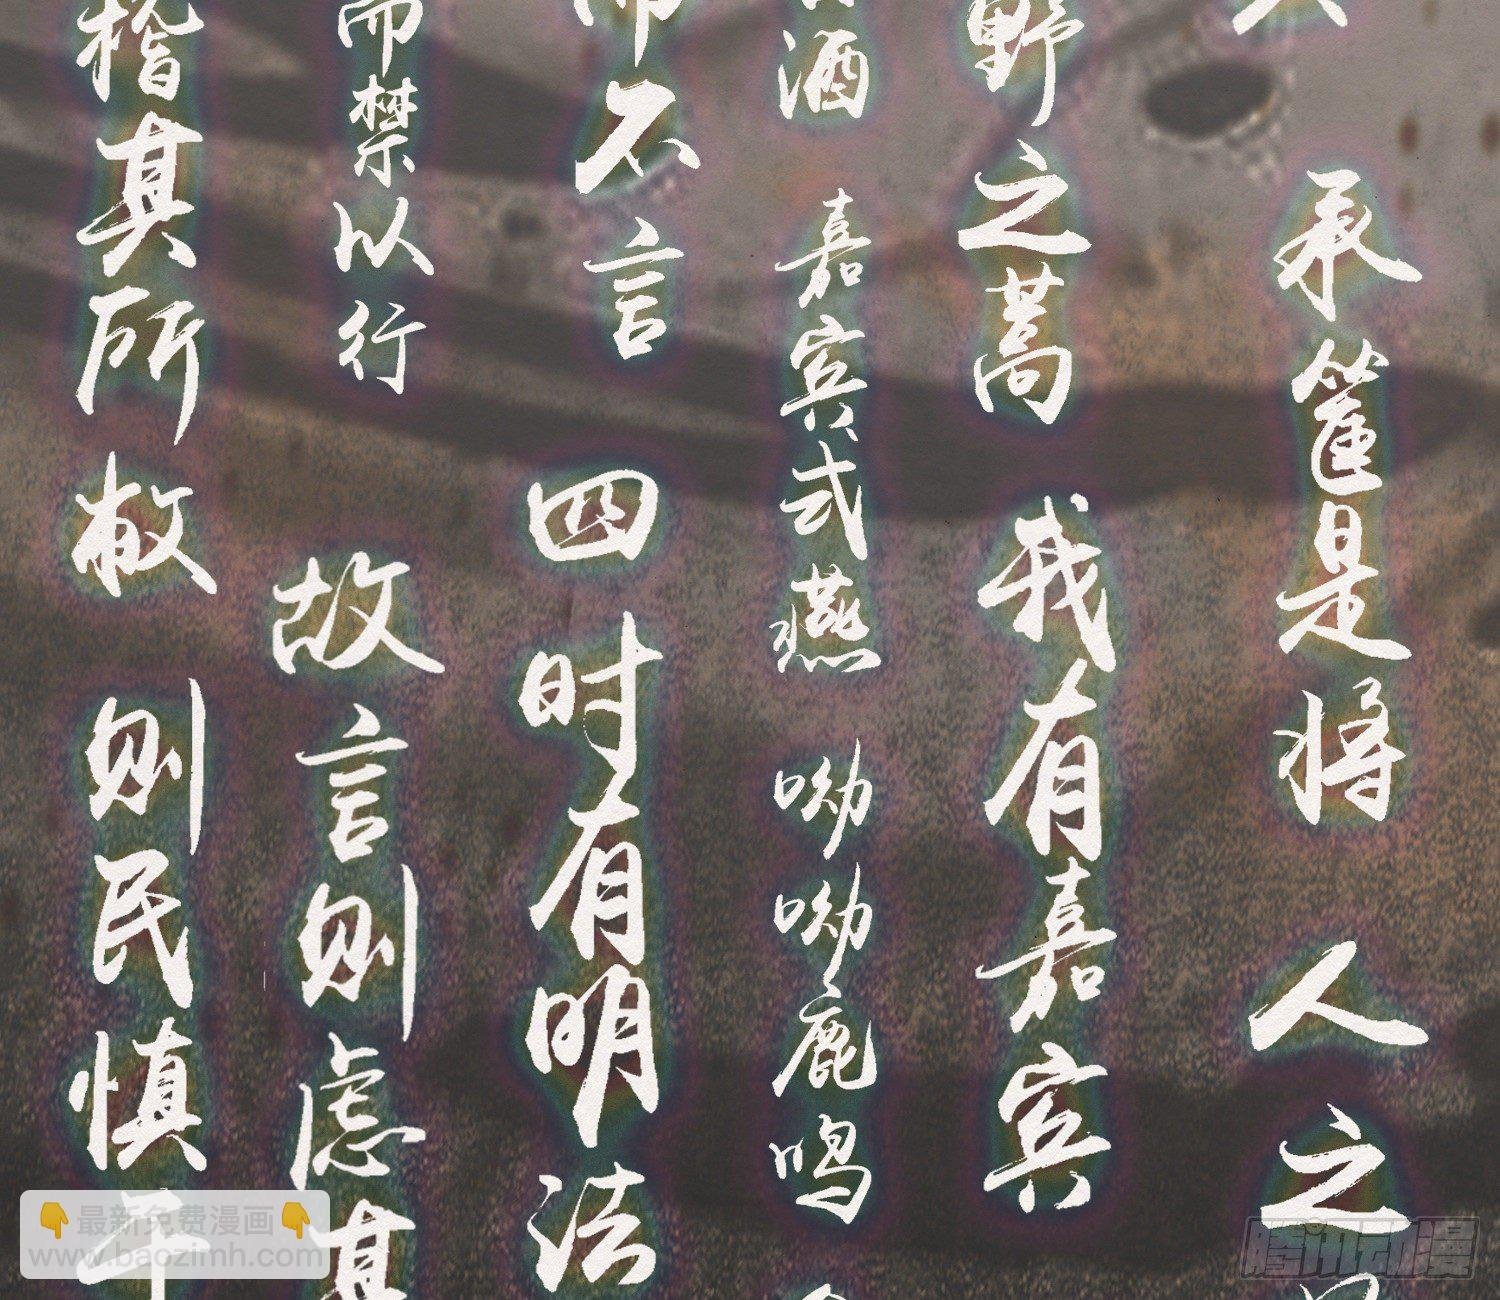 承筐是将 人之
野之蒿 我有嘉宾
酒 嘉宾式燕 呦呦鹿鸣
不言 四时有明法
而禁以行 故言则虑其
稽其所敝 则民慎
👇最新免费漫画👇
www.baozimh.com
腾讯动漫